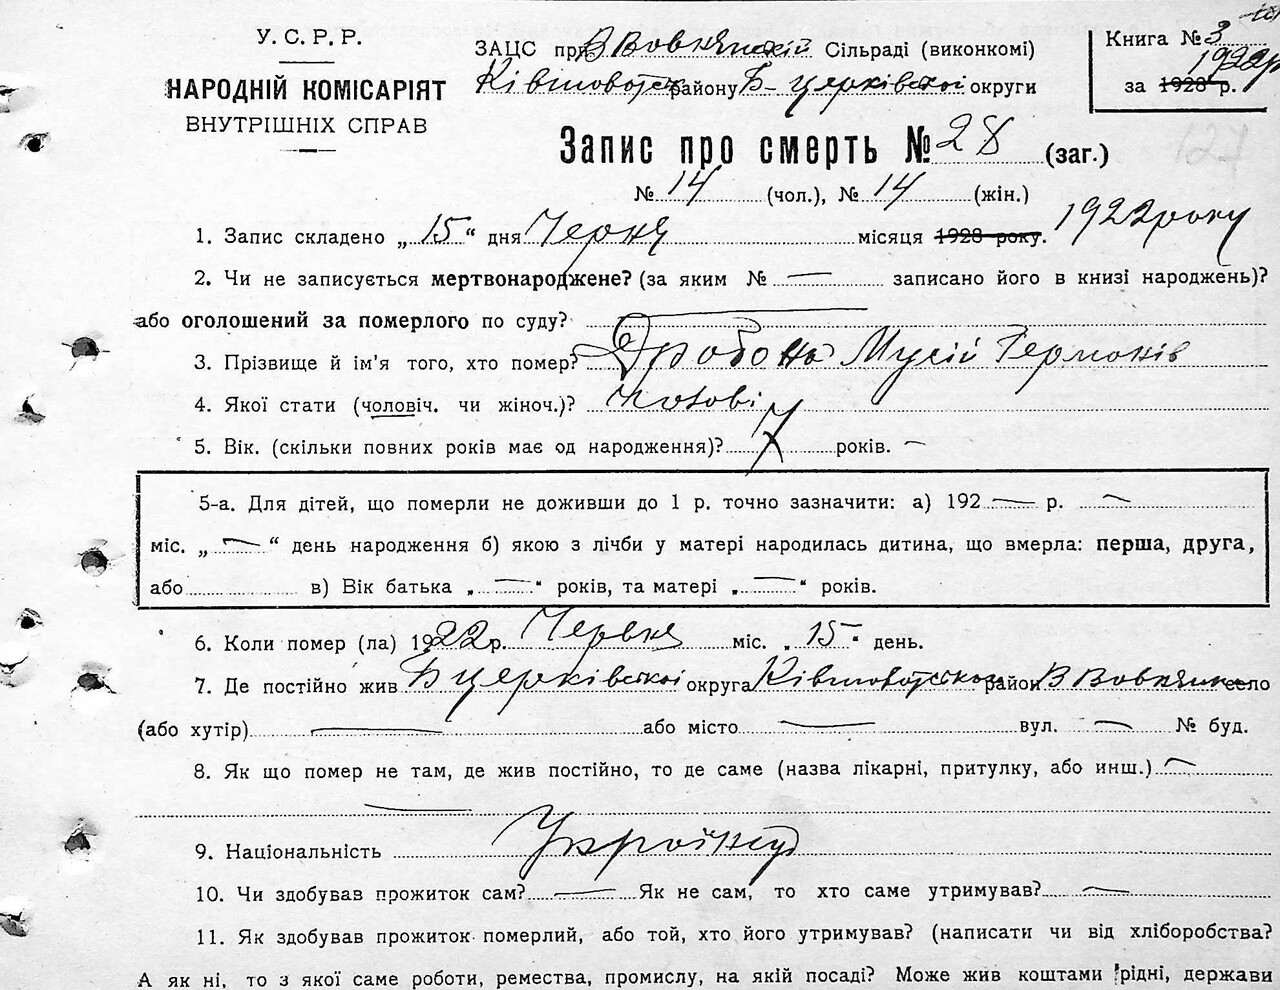 У.С.Р.Р.
НАРОДНІЙ КОМІСАРІЯТ
ВНУТРІШНІХ СПРАВ
ЗАЦС при В Вовнянській Сільраді (виконкомі)
району Б-церківської округи
Книга № 3
за 1928 р. 1922 р
Запис про смерть № 28 (заг.)
№ 14 (чол.), № 14 (жін.)
1. Запис складено „15“ дня Червня місяця 1928 року. 1922 року
2. Чи не записується мертвонароджене? (за яким № — записано його в книзі народжень)?
або оголошений за померлого по суду? —
3. Прізвище й ім'я того, хто помер? Мусій
4. Якої стати (чоловіч. чи жіноч.)? Чоловi
5. Вік. (скільки повних років має од народження)? 7 років. —
5-а. Для дітей, що померли не доживши до 1 р. точно зазначити: а) 192 — р. —
міс. „ — “ день народження б) якою з лічби у матері народилась дитина, що вмерла: перша, друга,
або в) Вік батька „ — “ років, та матері „ — “ років.
6. Коли помер (ла) 1922 р. Червня міс. „15“ день.
7. Де постійно жив Б церківської округа район В село
(або хутір) — або місто — вул. — № буд.
8. Як що помер не там, де жив постійно, то де саме (назва лікарні, притулку, або инш.) —
—
9. Національність
10. Чи здобував прожиток сам? — Як не сам, то хто саме утримував? —
11. Як здобував прожиток померлий, або той, хто його утримував? (написати чи від хліборобства?
А як ні, то з якої саме роботи, ремества, промислу, на якій посаді? Може жив коштами рідні, держави